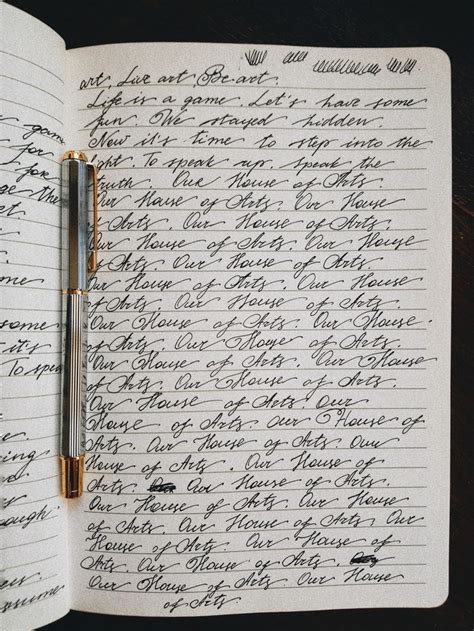 game
for
for
the
some
it's
To
art. Live art. Be art.
Life is a game. Let's have some
fun. We stayed hidden.
Now it's time to step into the
light. To speak up. Speak the
truth. Our House of Arts.
Our House of Arts. Our House
of Arts. Our House of Arts.
Our House of Arts. Our House
of Arts. Our House of Arts.
Our House of Arts. Our House
of Arts. Our House of Arts.
Our House of Arts. Our House
of Arts. Our House of Arts.
Our House of Arts. Our House
of Arts. Our House of Arts.
Our House of Arts. Our
House of Arts. Our House of
Arts. Our House of Arts. Our
House of Arts. Our House of
Arts. Our House of Arts.
Our House of Arts. Our House
of Arts. Our House of Arts. Our
House of Arts. Our House of
Arts. Our House of Arts.
Our House of Arts. Our House
of Arts.